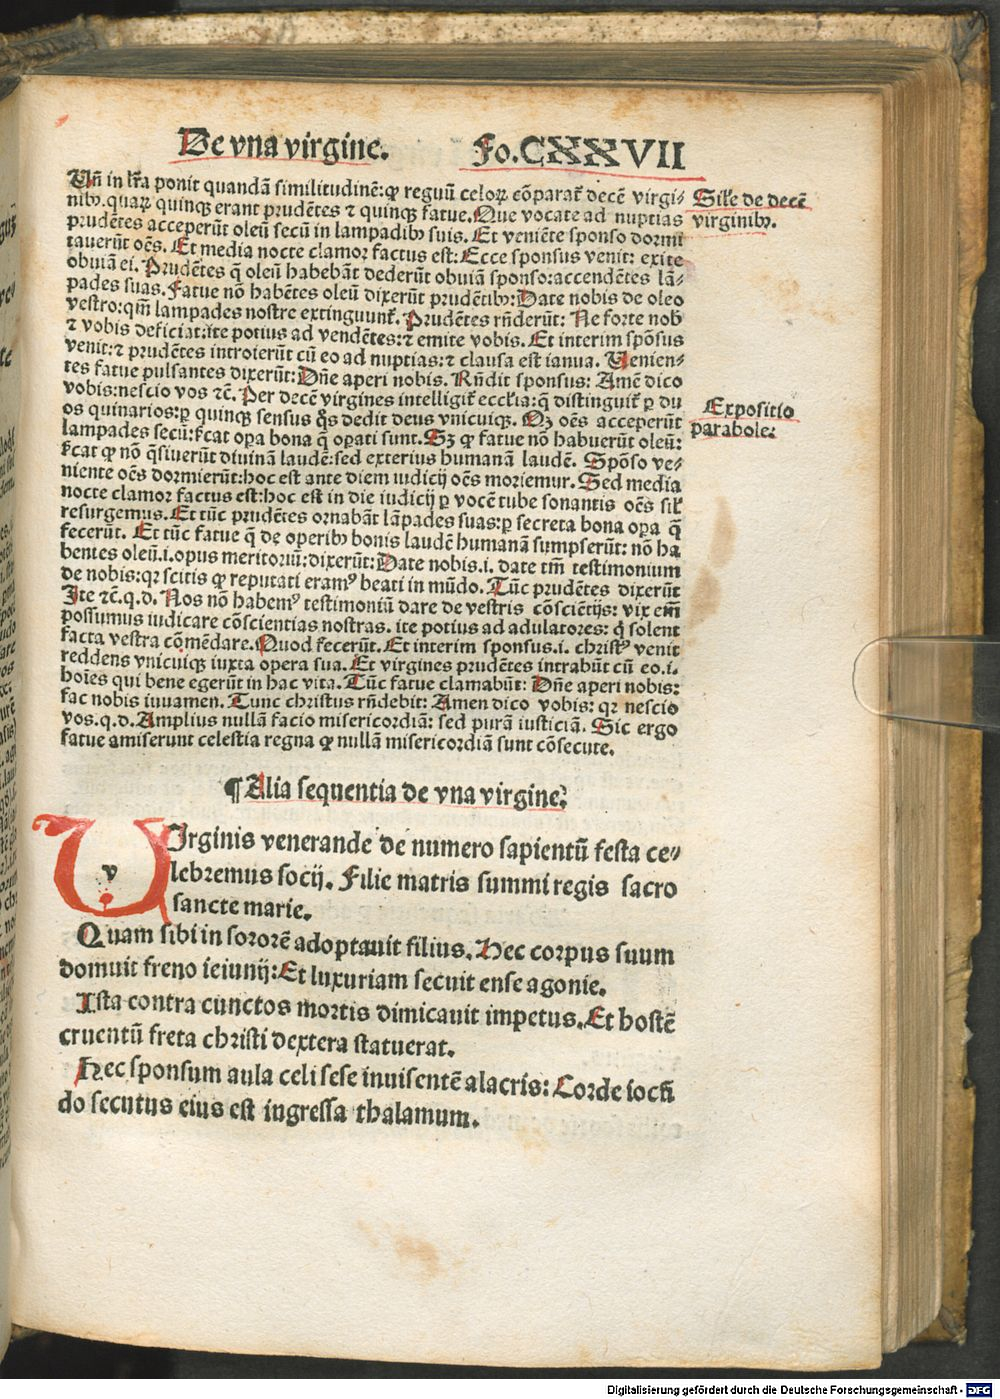 De vna virgine. Fo.CXXVII
Vñ in l̃ra ponit quandã similitudinẽ: ꝙ regnũ celoꝝ cõparat᷑ decẽ virgi⸗
nibꝰ. quaꝝ quinqꝫ erant prudẽtes ⁊ quinqꝫ fatue. Que vocate ad nuptias
prudẽtes acceperũt oleũ secũ in lampadibꝰ suis. Et veniẽte sponso dormi
tauerũt oẽs. Et media nocte clamor factus est: Ecce sponsus venit: exite
obuiã ei. Prudẽtes q̃ oleũ habebãt dederũt obuiã sponso: accendẽtes lã⸗
pades suas. Fatue nõ habẽtes oleũ dixerũt prudẽtibꝰ: Date nobis de oleo
vestro: qm̃ lampades nostre extinguunt᷑. Prudẽtes rñderũt: Ne forte nob
⁊ vobis deficiat: ite potius ad vendẽtes: ⁊ emite vobis. Et interim spõsus
venit: ⁊ prudẽtes introierũt cũ eo ad nuptias: ⁊ clausa est ianua. Venien⸗
tes fatue pulsantes dixerũt: Dñe aperi nobis. Rñdit sponsus: Amẽ dico
vobis: nescio vos ⁊c̃. Per decẽ virgines intelligit᷑ eccl̃ia: q̃ distinguit᷑ ꝑ du
os quinarios: ꝑ quinqꝫ sensus q̃s dedit deus vnicuiqꝫ. Qꝫ oẽs acceperũt
lampades secũ: s̃cat oꝑa bona q̃ oꝑati sunt. Sꝫ ꝙ fatue nõ habuerũt oleũ:
s̃cat ꝙ nõ q̃siuerũt diuinã laudẽ: sed exterius humanã laudẽ. Spõso ve⸗
niente oẽs dormierũt: hoc est ante diem iudicij oẽs moriemur. Sed media
nocte clamor factus est: hoc est in die iudicij ꝑ vocẽ tube sonantis oẽs sil̃
resurgemus. Et tũc prudẽtes ornabãt lãpades suas: ꝑ secreta bona oꝑa q̃
fecerũt. Et tũc fatue q̃ de operibꝰ bonis laudẽ humanã sumpserũt: nõ ha
bentes oleũ .i. opus meritoriũ: dixerũt: Date nobis .i. date tm̃ testimonium
de nobis: qꝛ scitis ꝙ reputati eramꝰ beati in mũdo. Tũc prudẽtes dixerũt
Ite ⁊c̃. q.d. Nos nõ habemꝰ testimoniũ dare de vestris cõsciẽtijs: vix em̃
possumus iudicare cõscientias nostras. ite potius ad adulatores: q̃ solent
facta vestra cõmẽdare. Quod fecerũt. Et interim sponsus .i. christꝰ venit
reddens vnicuiqꝫ iuxta opera sua. Et virgines prudẽtes intrabũt cũ eo .i.
hoĩes qui bene egerũt in hac vita. Tũc fatue clamabũt: Dñe aperi nobis:
fac nobis iuuamen. Tunc christus rñdebit: Amen dico vobis: qꝛ nescio
vos. q.d. Amplius nullã facio misericordiã: sed purã iusticiã. Sic ergo
fatue amiserunt celestia regna ꝙ nullã misericordiã sunt cõsecute.
Sil̃e de decẽ
virginibꝰ.
Expositio
parabole:
¶ Alia sequentia de vna virgine:
v
VIrginis venerande de numero sapientũ festa ce⸗
lebremus socij. Filie matris summi regis sacro
sancte marie.
Quam sibi in sororẽ adoptauit filius. Hec corpus suum
domuit freno ieiunij: Et luxuriam secuit ense agonie.
Ista contra cunctos mortis dimicauit impetus. Et hostẽ
cruentũ freta christi dextera statuerat.
Hec sponsum aula celi sese inuisentẽ alacris: Corde iocũ
do secutus eius est ingressa thalamum.
Digitalisierung gefördert durch die Deutsche Forschungsgemeinschaft - DFG